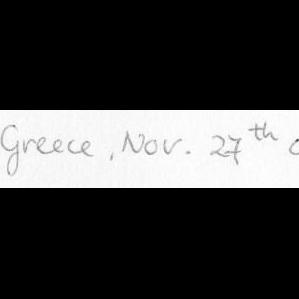 Greece, Nov. 27th